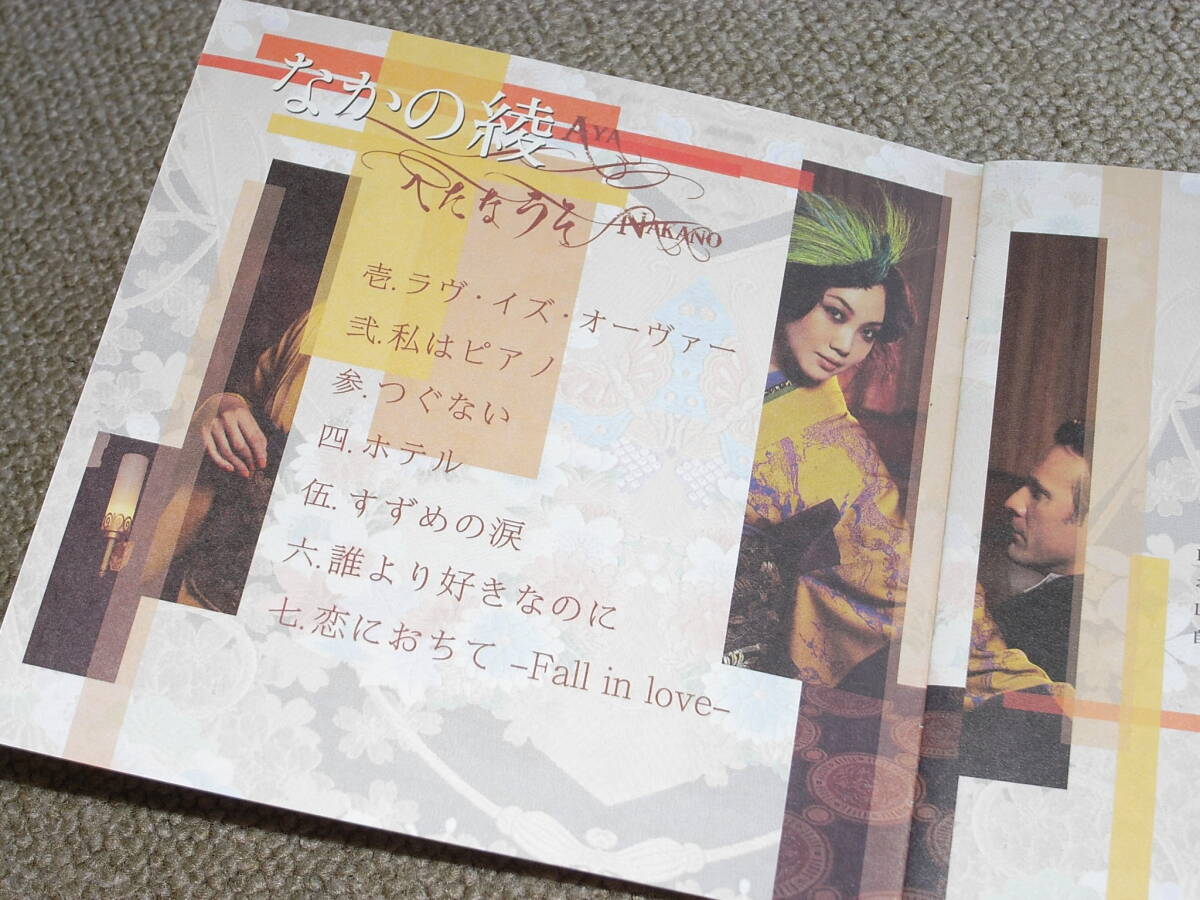 なかの綾
AYA
へたなうそ
NAKANO
壱.ラヴ・イズ・オーヴァー
弐.私はピアノ
参.つぐない
四.ホテル
伍.すずめの涙
六.誰より好きなのに
七.恋におちて –Fall in love–